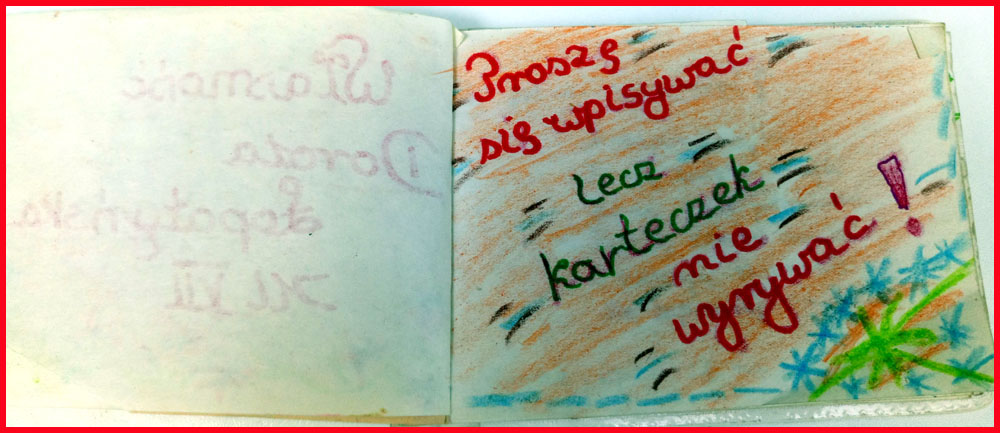 Własność
Dorota
Łopatyńska
kl. VII
Proszę
się wpisywać
lecz
karteczek
nie
wyrywać!